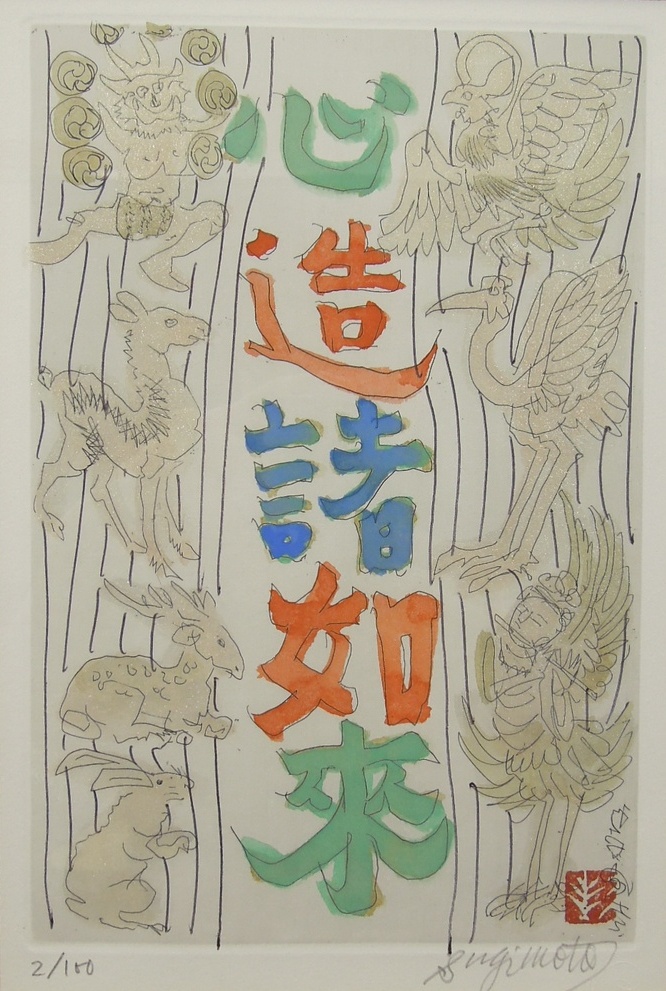 心造諸如來
2/100
Sugimoto